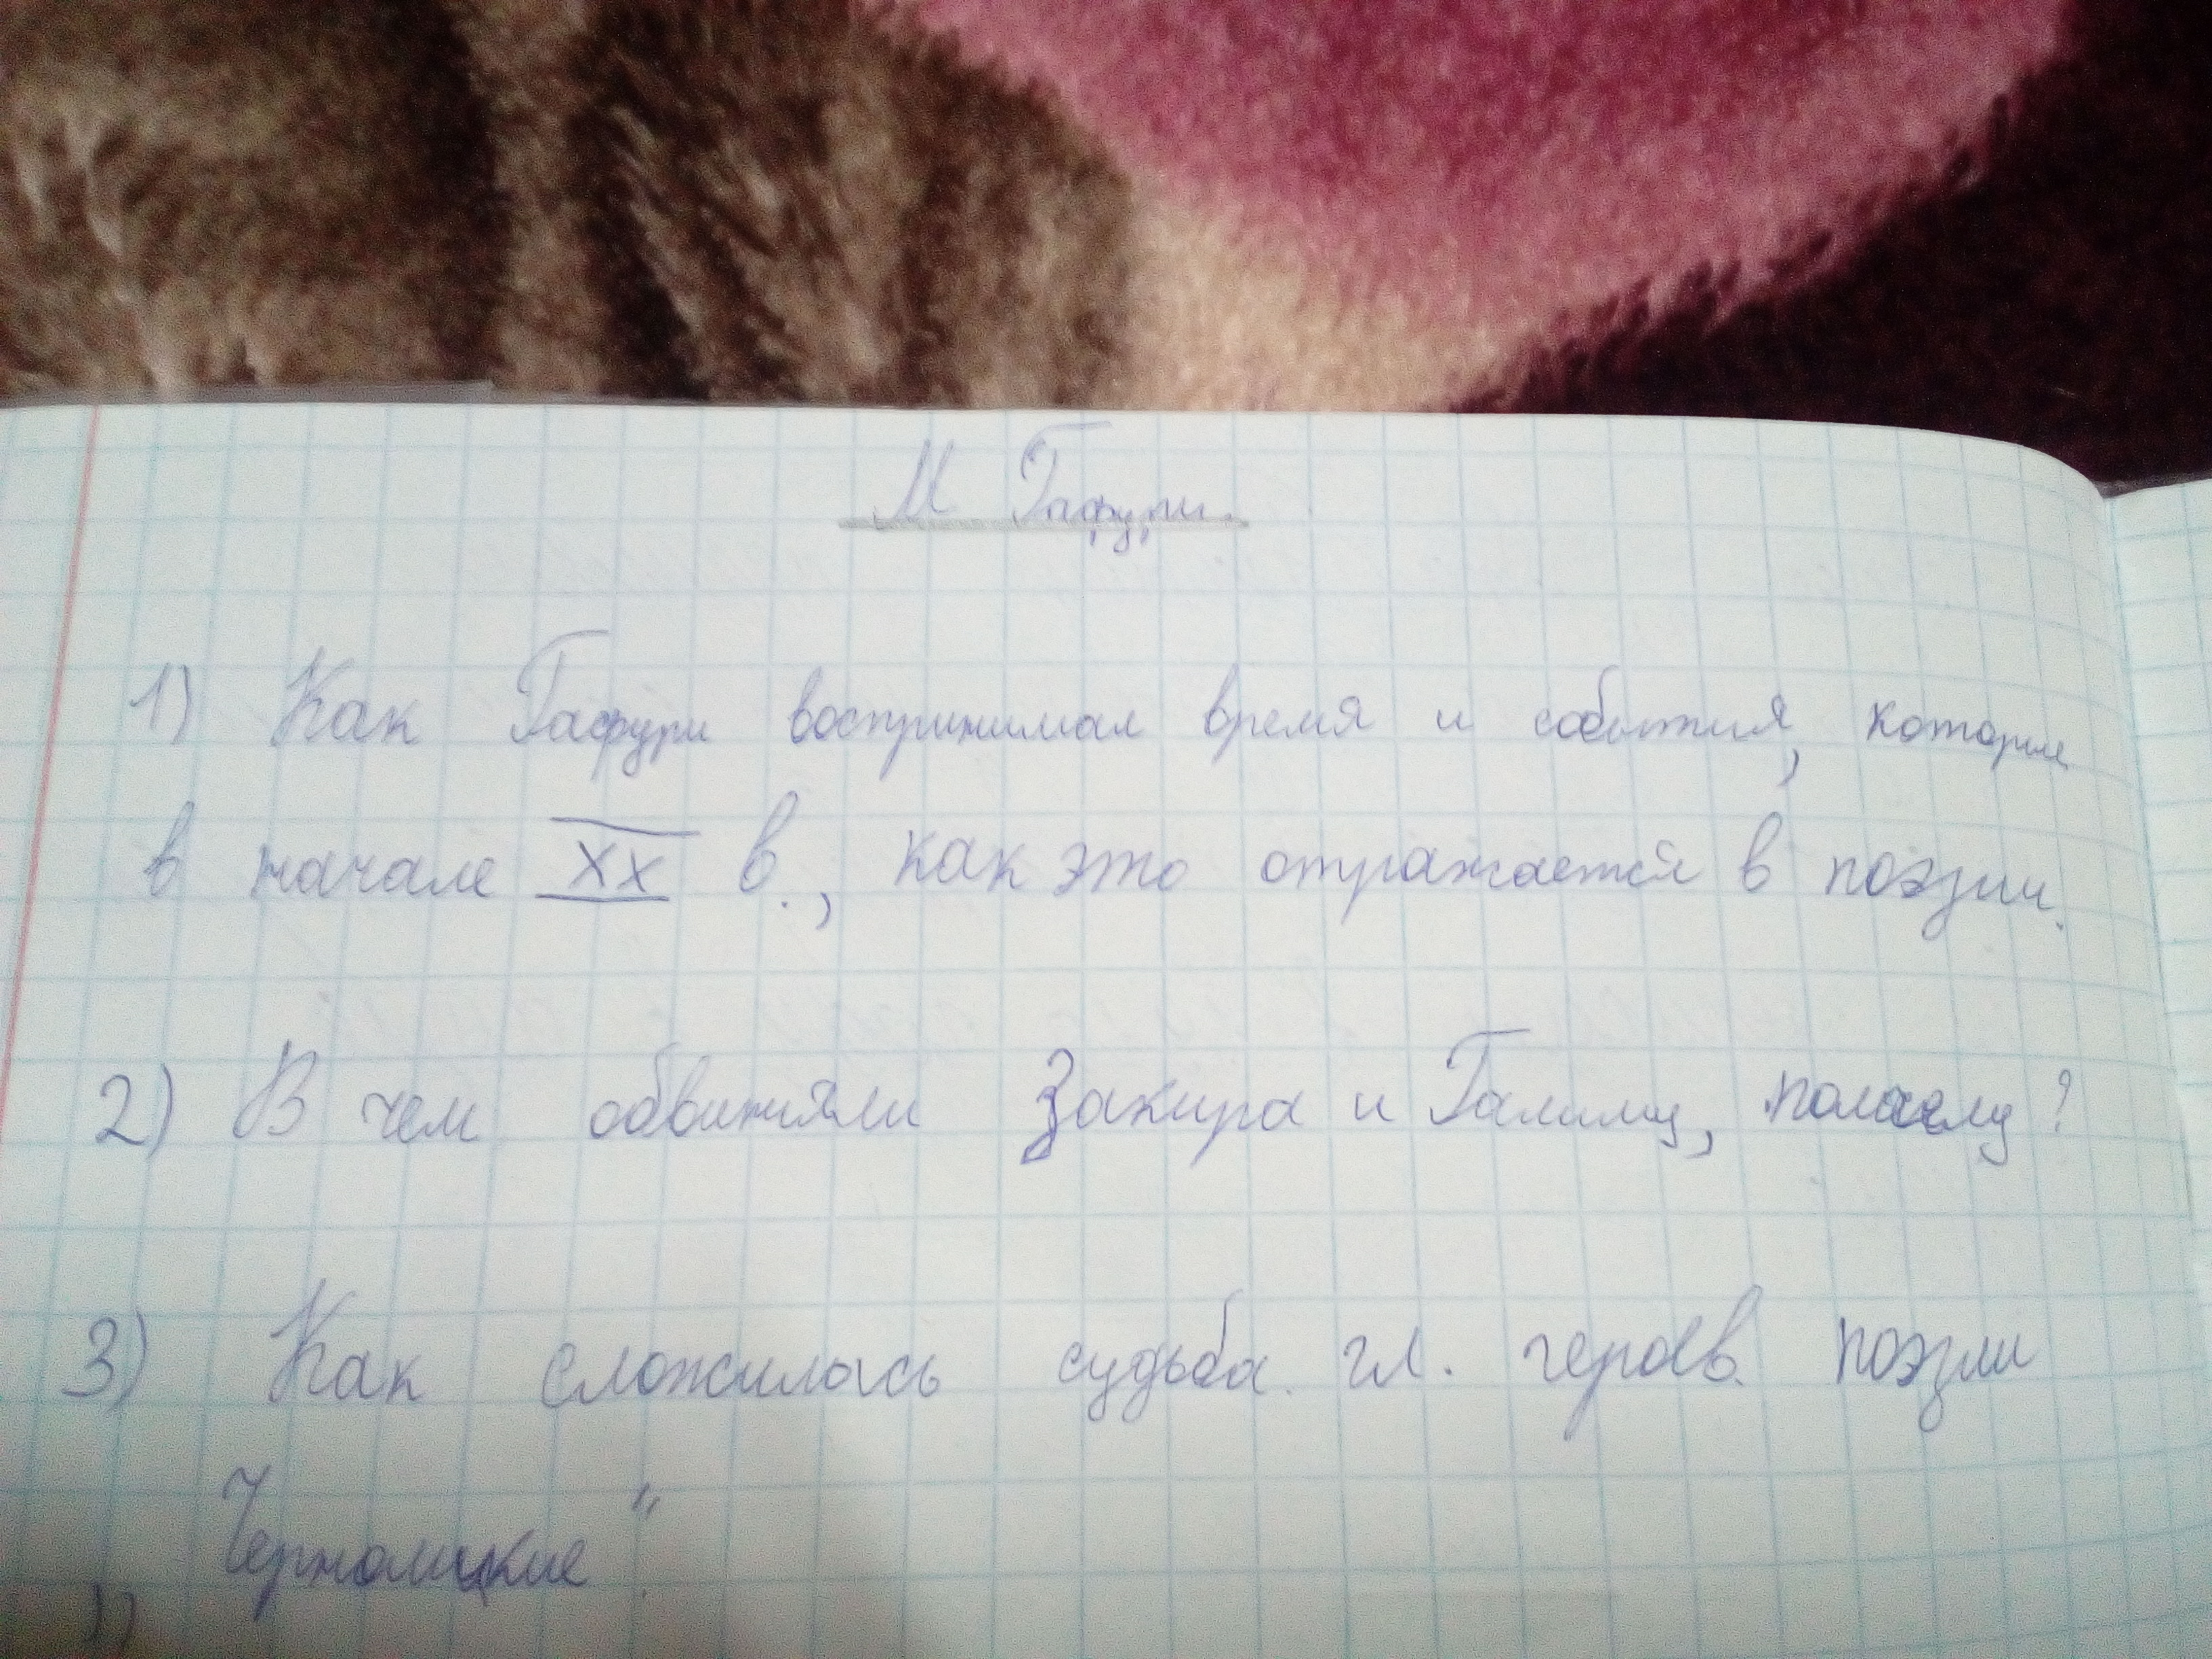 М Гафури.
1) Как Гафури воспринимал время и события, которые
в начале XX в., как это отражается в поэзии.
2) В чем обвиняли Закира и Галиму, почему?
3) Как сложилась судьба гл. героев поэзии
Чернолицкие".
1)